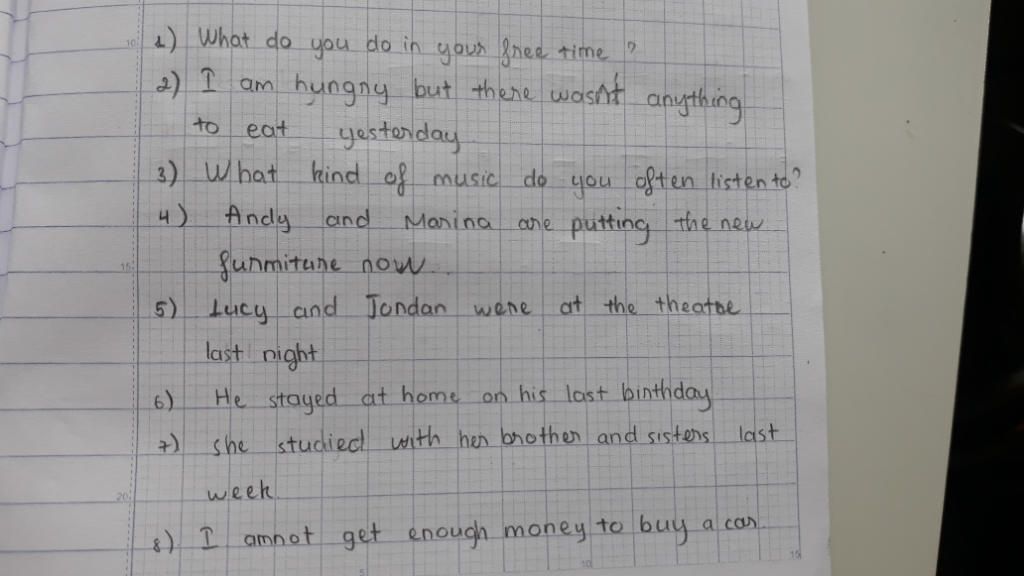 1) What do you do in your free time ?
2) I am hungry but there wasn't anything
to eat yesterday
3) What kind of music do you often listen to?
4) Andy and Marina are putting the new
furmiture now
5) Lucy and Jordan were at the theatre
last night
6) He stayed at home on his last birthday
7) she studied with her brother and sisters last
week
8) I amnot get enough money to buy a car.